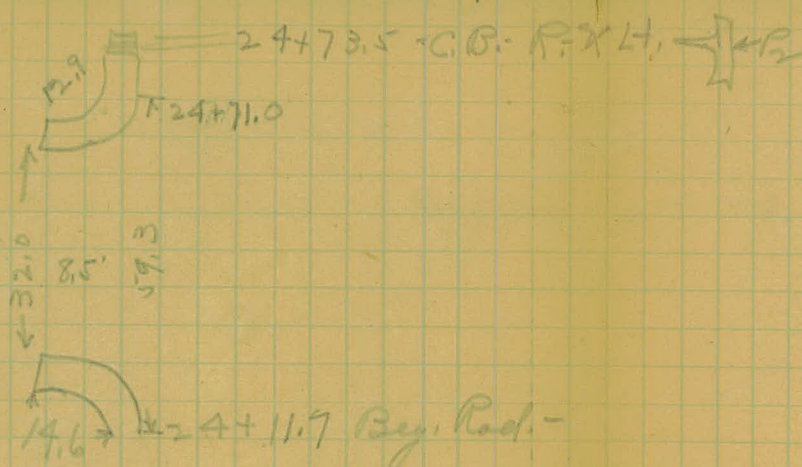 24+73.5 -C.B.- R-X Lt.
12.9
24+71.0
32.0
8.5'
59.3
14.6
24+11.7 Beg. Rad.-